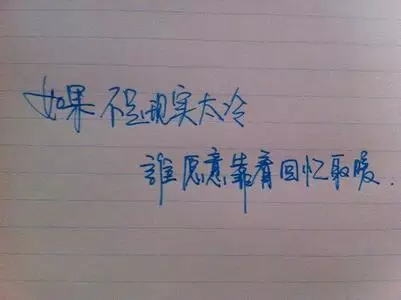 如果不是现实太冷
誰愿意靠着回忆取暖.